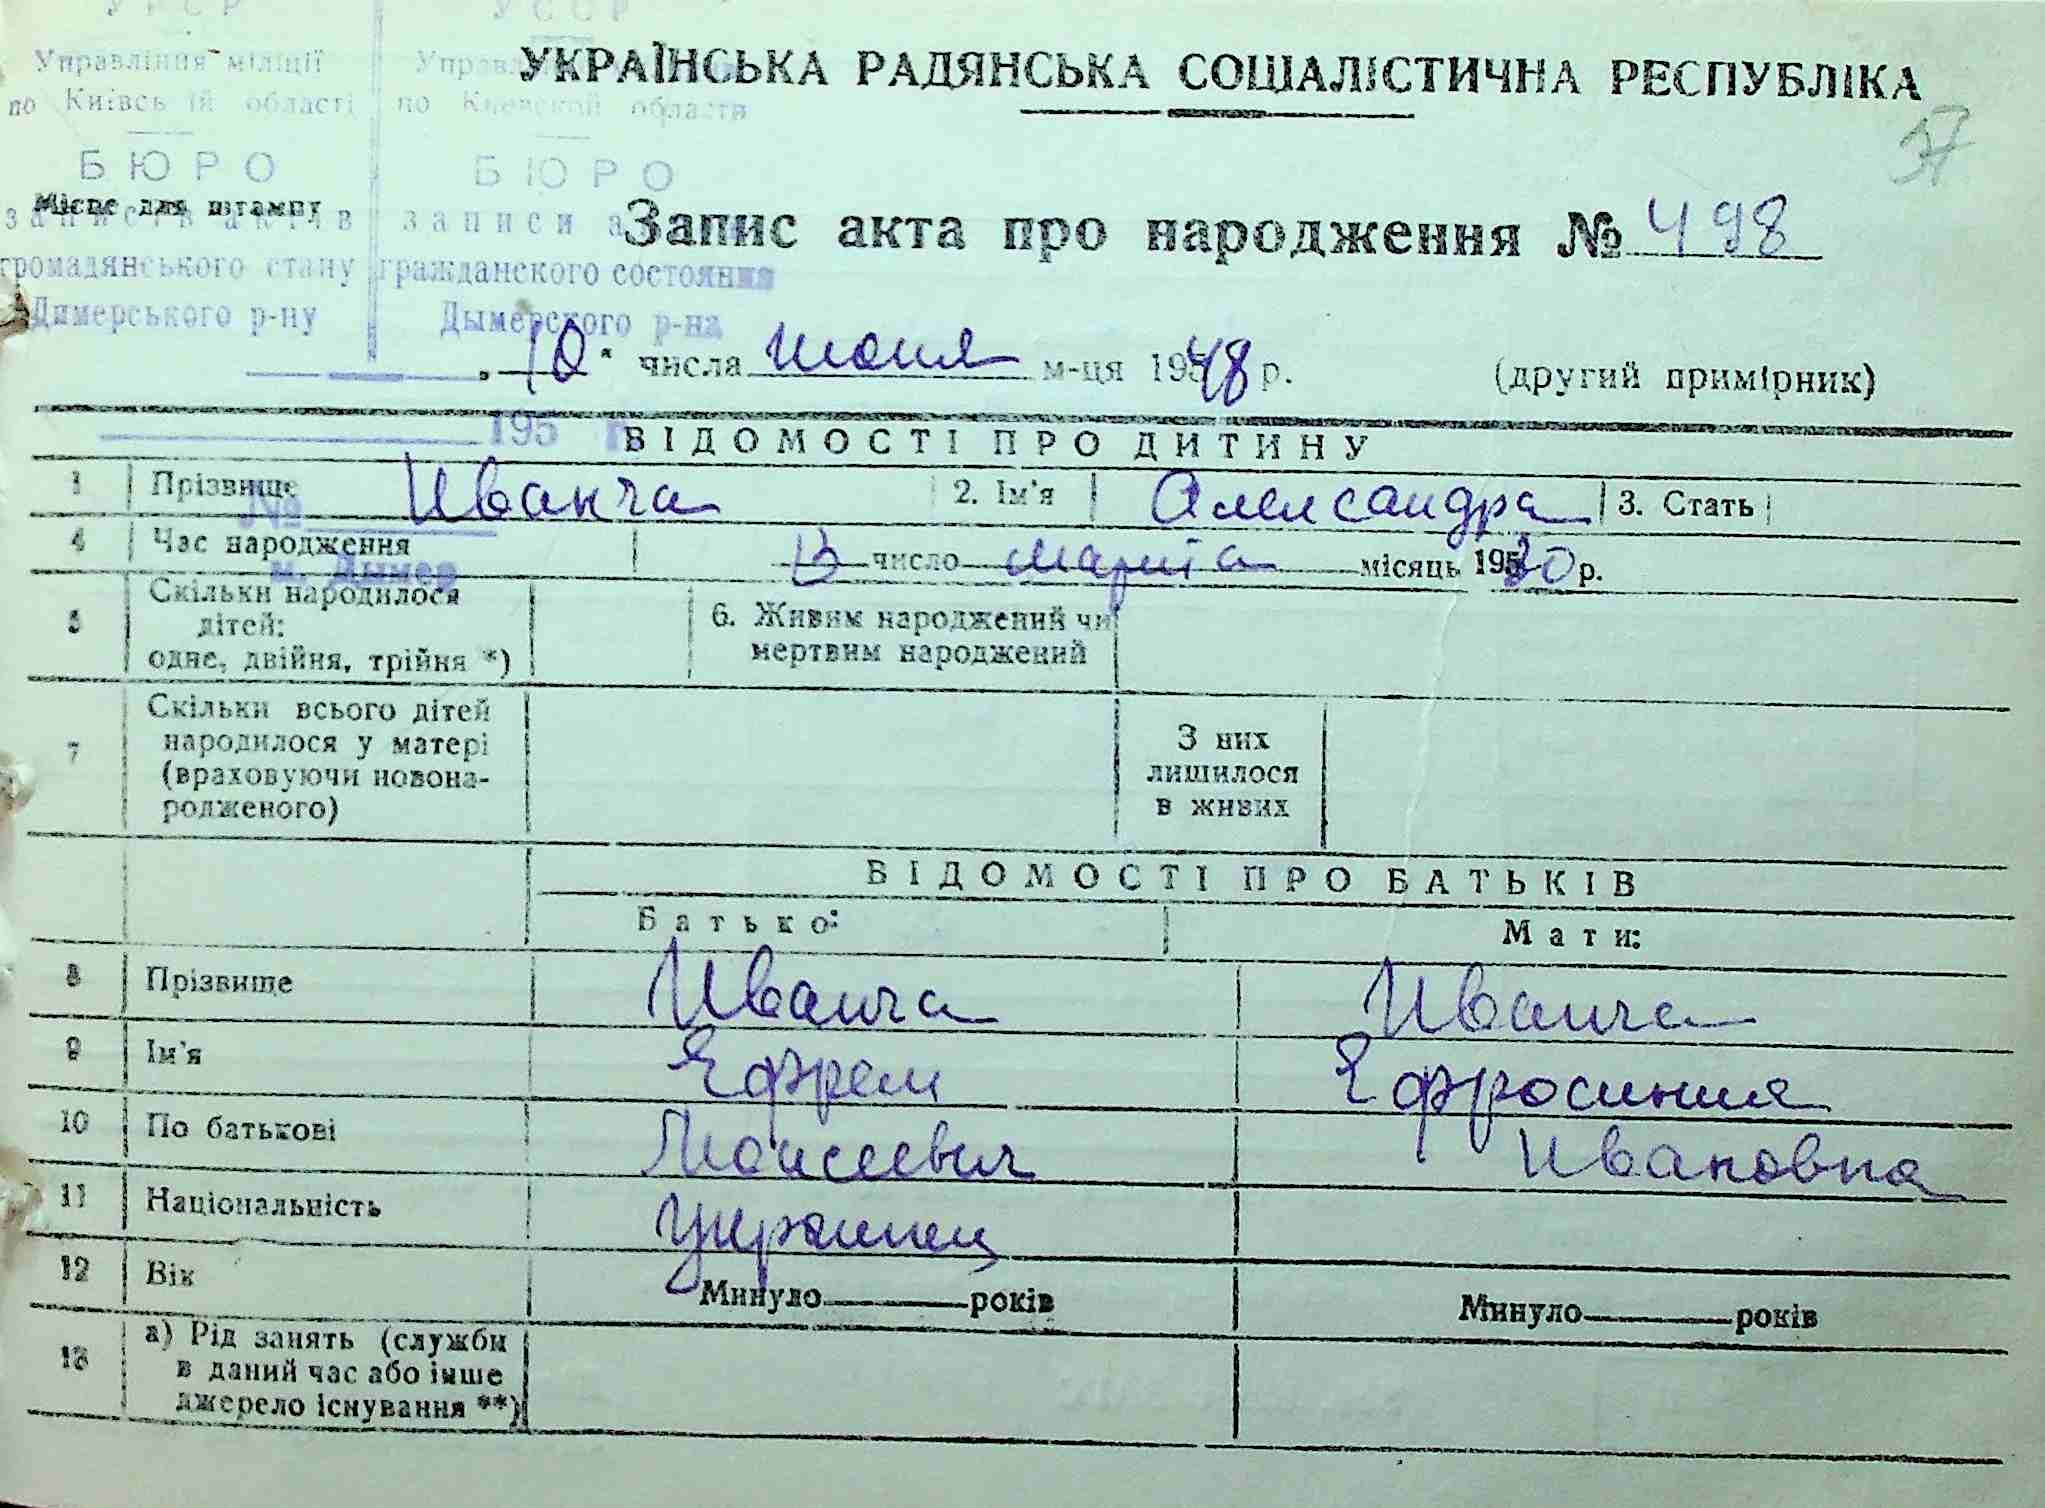 УРСР УССР
Управління міліції Управл
по Київсь ій області по Киевской области
УКРАЇНСЬКА РАДЯНСЬКА СОЦІАЛІСТИЧНА РЕСПУБЛІКА
37
БЮРО БЮРО
Місце для штампу
записів актів записи а
Запис акта про народження № 498
громадянського стану гражданского состояния
Димерського р-ну Дымерского р-на
„10" числа июня м-ця 1948 р. (другий примірник)
195 г.
ВІДОМОСТІ ПРО ДИТИНУ
1 Прізвище Иванча 2. Ім'я Александра 3. Стать
№
4 Час народження 13 число марта місяць 1930 р.
м. Дымер
5 Скільки народилося дітей: одне, двійня, трійня *) 6. Живим народжений чи мертвим народжений
7 Скільки всього дітей народилося у матері (враховуючи новонародженого) З них лишилося в живих
ВІДОМОСТІ ПРО БАТЬКІВ
Батько: Мати:
8 Прізвище Иванча Иванча
9 Ім'я Ефрем Ефросиния
10 По батькові Моисеевич Ивановна
11 Національність украинец
12 Вік Минуло років Минуло років
13 а) Рід занять (служби в даний час або інше джерело існування **)